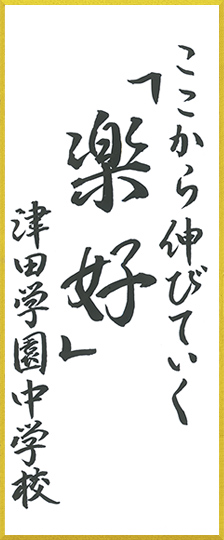 ここから伸びていく
「楽好」
津田学園中学校